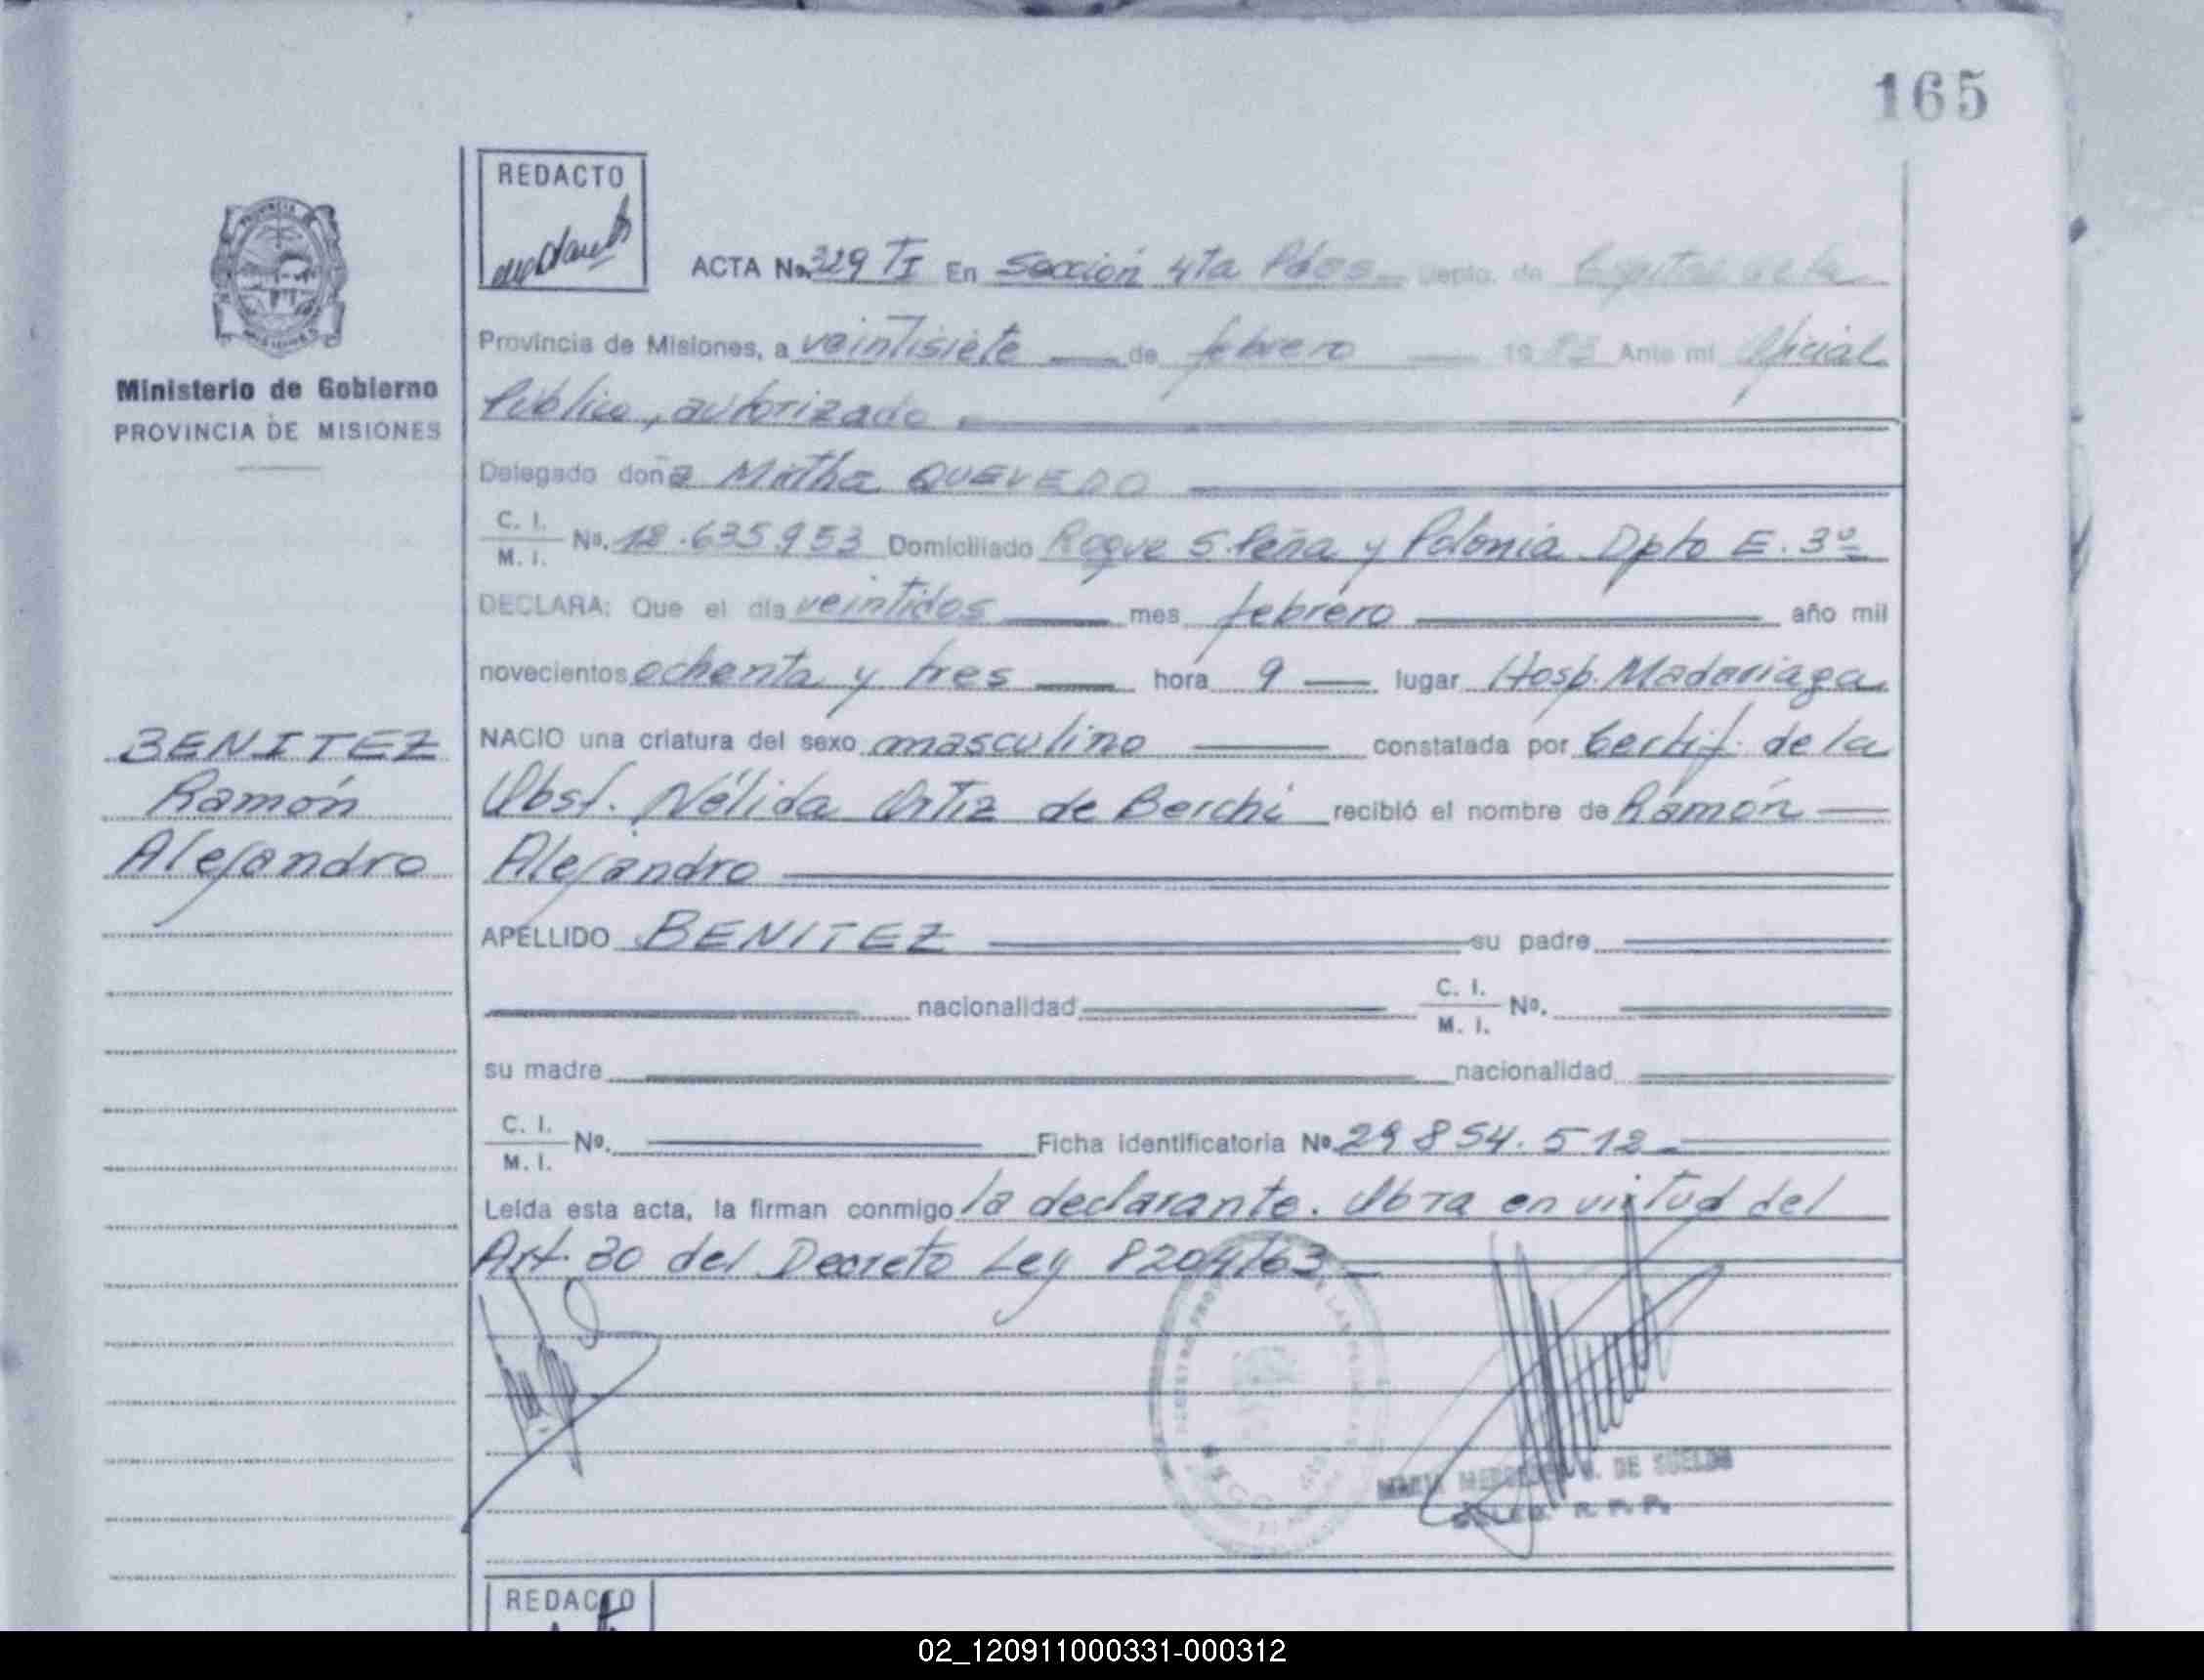 165
REDACTO
ACTA No. 329 TI En Sección 4ta Pdas Depto. de Capital de la
Provincia de Misiones, a veintisiete de febrero 1983 Ante mi Oficial
Público, autorizado
Delegado doña Mirtha QUEVEDO
C. I.
M. I. No. 12.635.953 Domiciliado Roque S. Peña y Polonia Dpto E. 3º
DECLARA: Que el día veintidos mes febrero año mil
novecientos ochenta y tres hora 9 lugar Hosp. Madariaga
NACIO una criatura del sexo masculino constatada por Certif. de la
Obst. Nélida Ortiz de Berchi recibió el nombre de Ramón
Alejandro
APELLIDO BENITEZ su padre
nacionalidad C. I.
M. I. No.
su madre nacionalidad
C. I.
M. I. No. Ficha identificatoria No. 29.854.512
Leída esta acta, la firman conmigo la declarante. Obra en virtud del
Art. 30 del Decreto Ley 8204/63
DE SUELDO
DELEG. R.P.P.
REDACTO
Ministerio de Gobierno
PROVINCIA DE MISIONES
BENITEZ
Ramón
Alejandro
02_120911000331-000312